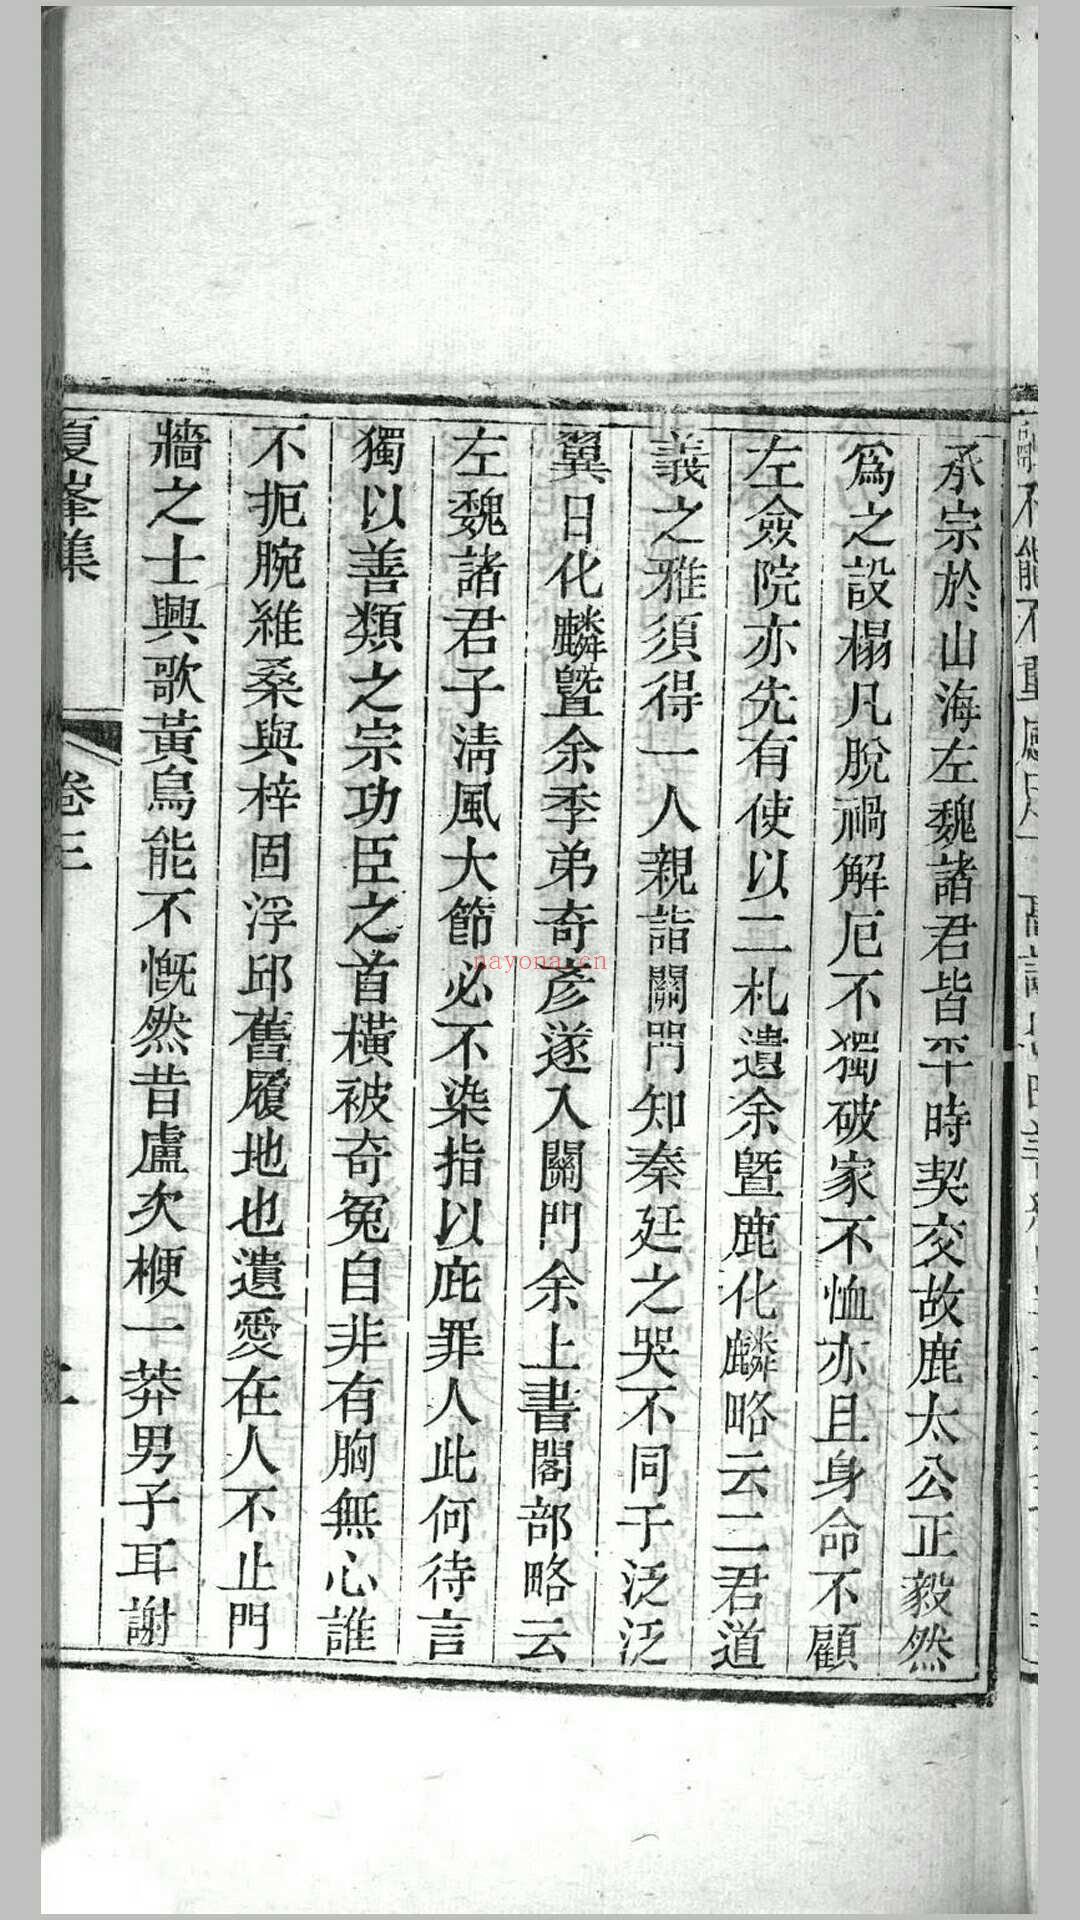 承宗於山海左魏諸君皆平時契交故鹿太公正毅然
爲之設榻凡脫禍解厄不獨破家不恤亦且身命不顧
左僉院亦先有使以二札遺余暨鹿化麟略云二君道
義之雅須得一人親詣關門知秦廷之哭不同于泛泛
翼日化麟暨余季弟奇彥遂入關門余上書閣部略云
左魏諸君子淸風大節必不染指以庇罪人此何待言
獨以善類之宗功臣之首橫被奇冤自非有胸無心誰
不扼腕維桑與梓固浮邱舊履地也遺愛在人不止門
牆之士興歌黃鳥能不慨然昔盧次楩一莽男子耳謝
夏峯集
卷三
nayona.cn